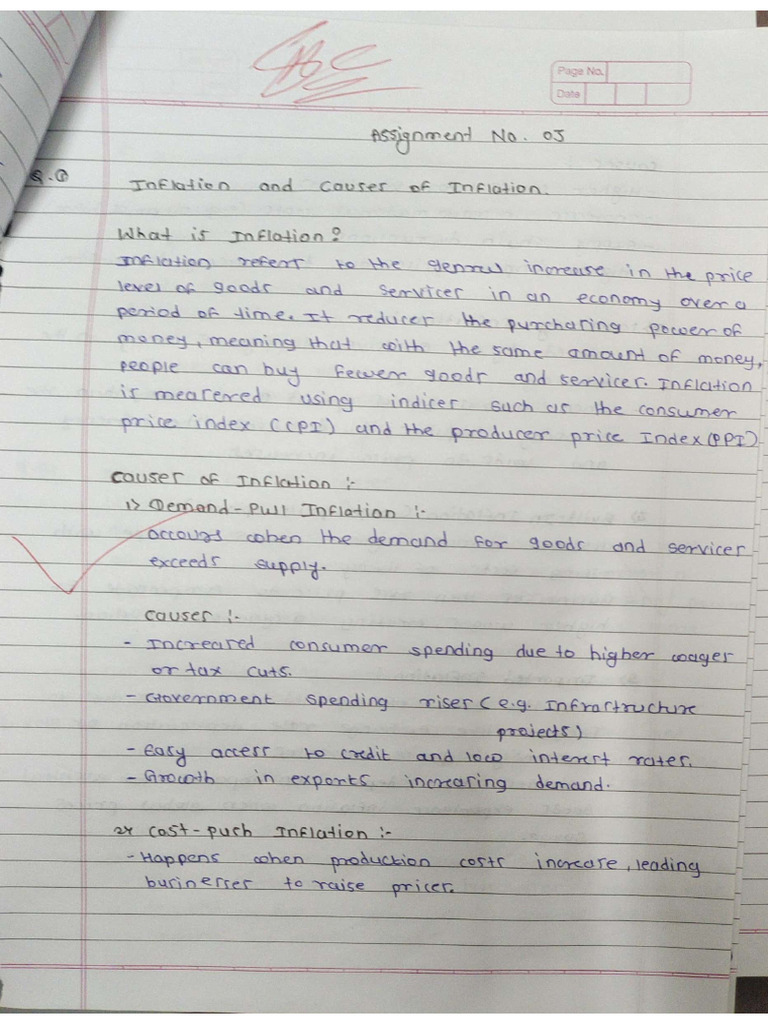 Page No.
Date
Assignment No. 05
Q.①
Inflation and causes of Inflation.
What is Inflation?
Inflation refers to the genral increase in the price
level of goods and services in an economy over a
period of time. It reduces the purchasing power of
money, meaning that with the same amount of money,
people can buy fewer goods and services. Inflation
is mesered using indices such as the consumer
price index (CPI) and the producer price Index (PPI)
causes of Inflation :-
1) Demand-Pull Inflation :-
occours when the demand for goods and services
exceeds supply.
causes :-
- Increased consumer spending due to higher wages
or tax cuts.
- Government spending rises (e.g. Infrastructure
projects)
- Easy access to credit and low interest rates.
- Growth in exports increasing demand.
2) Cost-push Inflation :-
- Happens when production costs increase, leading
businesses to raise prices.